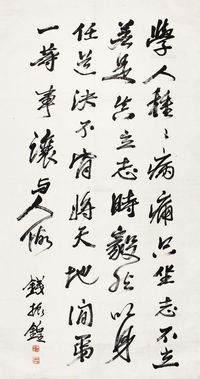 學人種種病痛只坐志不立
若是真立志時毅然以身
任道決不肯將天地間第
一等事讓与人做
錢振鍠